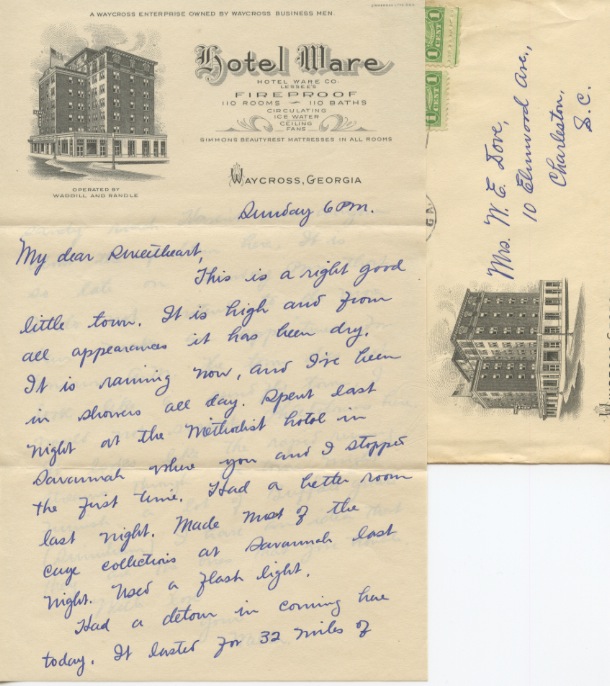 A WAYCROSS ENTERPRISE OWNED BY WAYCROSS BUSINESS MEN
Hotel Ware
HOTEL WARE CO.
LESSEES
FIREPROOF
110 ROOMS 110 BATHS
CIRCULATING
ICE WATER
CEILING
FANS
SIMMONS BEAUTYREST MATTRESSES IN ALL ROOMS
OPERATED BY
WARGILL AND RANDLE
WAYCROSS, GEORGIA
Sunday 6 P.M.
My dear Sweetheart,
This is a right good
little town. It is high and from
all appearances it has been dry.
It is raining now, and I've been
in showers all day. Spent last
night at the Methodist hotel in
Savannah where you and I stopped
the first time. Had a better room
last night. Made most of the
cage collections at Savannah last
night. Used a flash light.
Had a detour in coming here
today. It lasted for 32 miles of
1 CENT 1
1 CENT 1
Mrs. W. E. Dove,
10 Elmwood Ave.,
Charleston,
S. C.